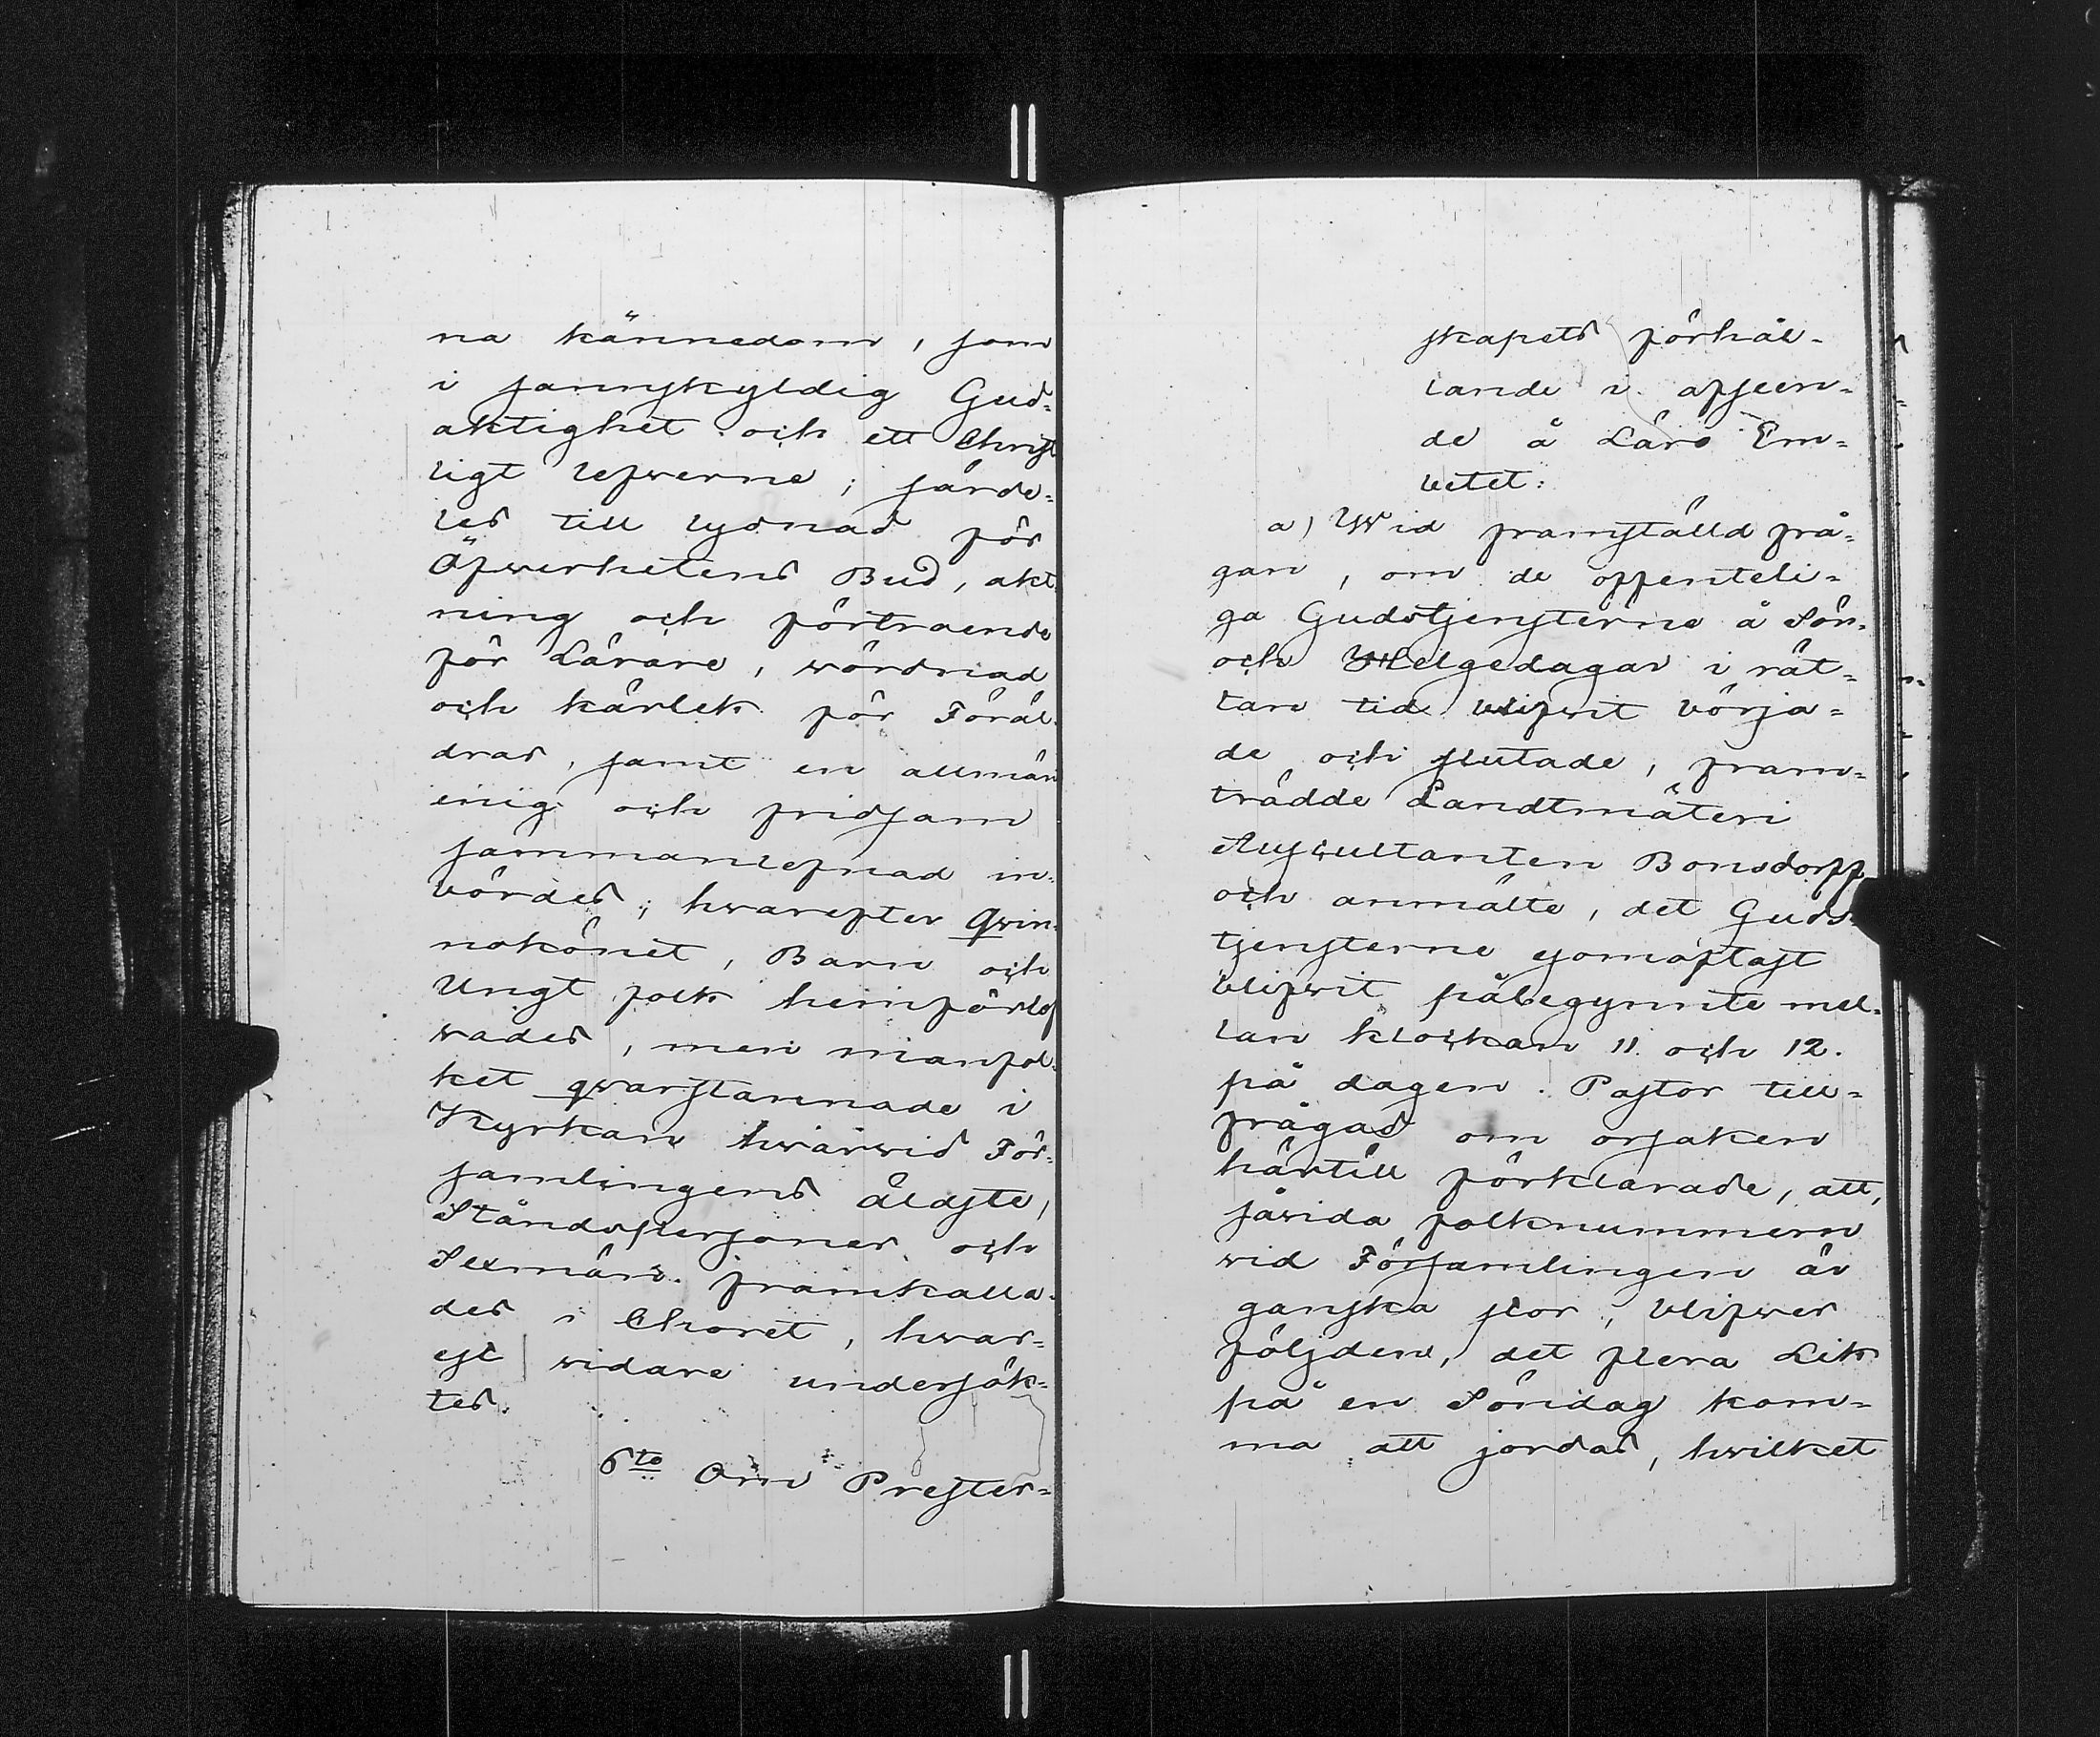 na kännedom, som
i sannskyldig Gud-
aktighet och ett Christ
ligt lefwerne; särde-
les till lydnad för
Öfwerhetens Bud, akt
ning och förtroende
för Lärare, wördnad
och kärlek för Föräl
drar, samt en allmän
enig och fridsam
sammanlefnad in-
bördes; hwarefter Qwin-
nokönet, Barn och
Ungt folk hemförlof
wades, men manfol-
ket qwarstannade i
Kyrkan hwarwid För-
samlingens äldste,
Ståndspersoner och
Sexmän framkalla-
des i Choret, hwar-
est widare undersök-
tes.
6to Om Prester-
skapets förhål-
lande i afseen-
de å Läro Em-
betet:
a) Wid framställd frå-
gan, om de offenteli-
ga Gudstjensterne å Sön-
och Helgedagar i rät-
tan tid blifwit börja-
de och slutade, fram-
trädde Landtmäteri
Auscultanten Bonsdorff
och anmälte, det Guds-
tjensterne esomoftast
blifwit påbegynnte mel-
lan klockan 11 och 12.
på dagen. Pastor till-
frågad om orsaken
härtill förklarade, att,
såwida folknummern
wid Församlingen är
ganska stor, blifwer
följden, det flera Lik
på en Söndag kom-
ma att jordas, hwilket